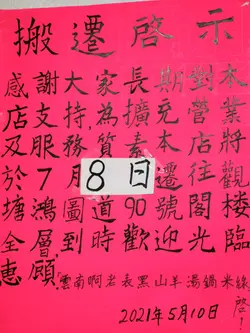 搬遷啓示
感謝大家長期對本
店支持,為擴充營業
及服務質素本店將
於7月8日遷往觀
塘鴻圖道90號閣樓
全層到時歡迎光臨
惠顧 「雲南啊岩長黑山羊湯鍋米線
啓
2021年5月10日